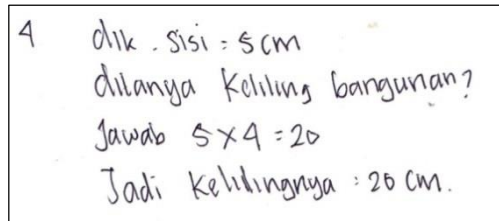 4 dik . Sisi = 5 cm
ditanya Keliling bangunan?
Jawab 5 x 4 = 20
Jadi Kelilingnya : 20 cm.